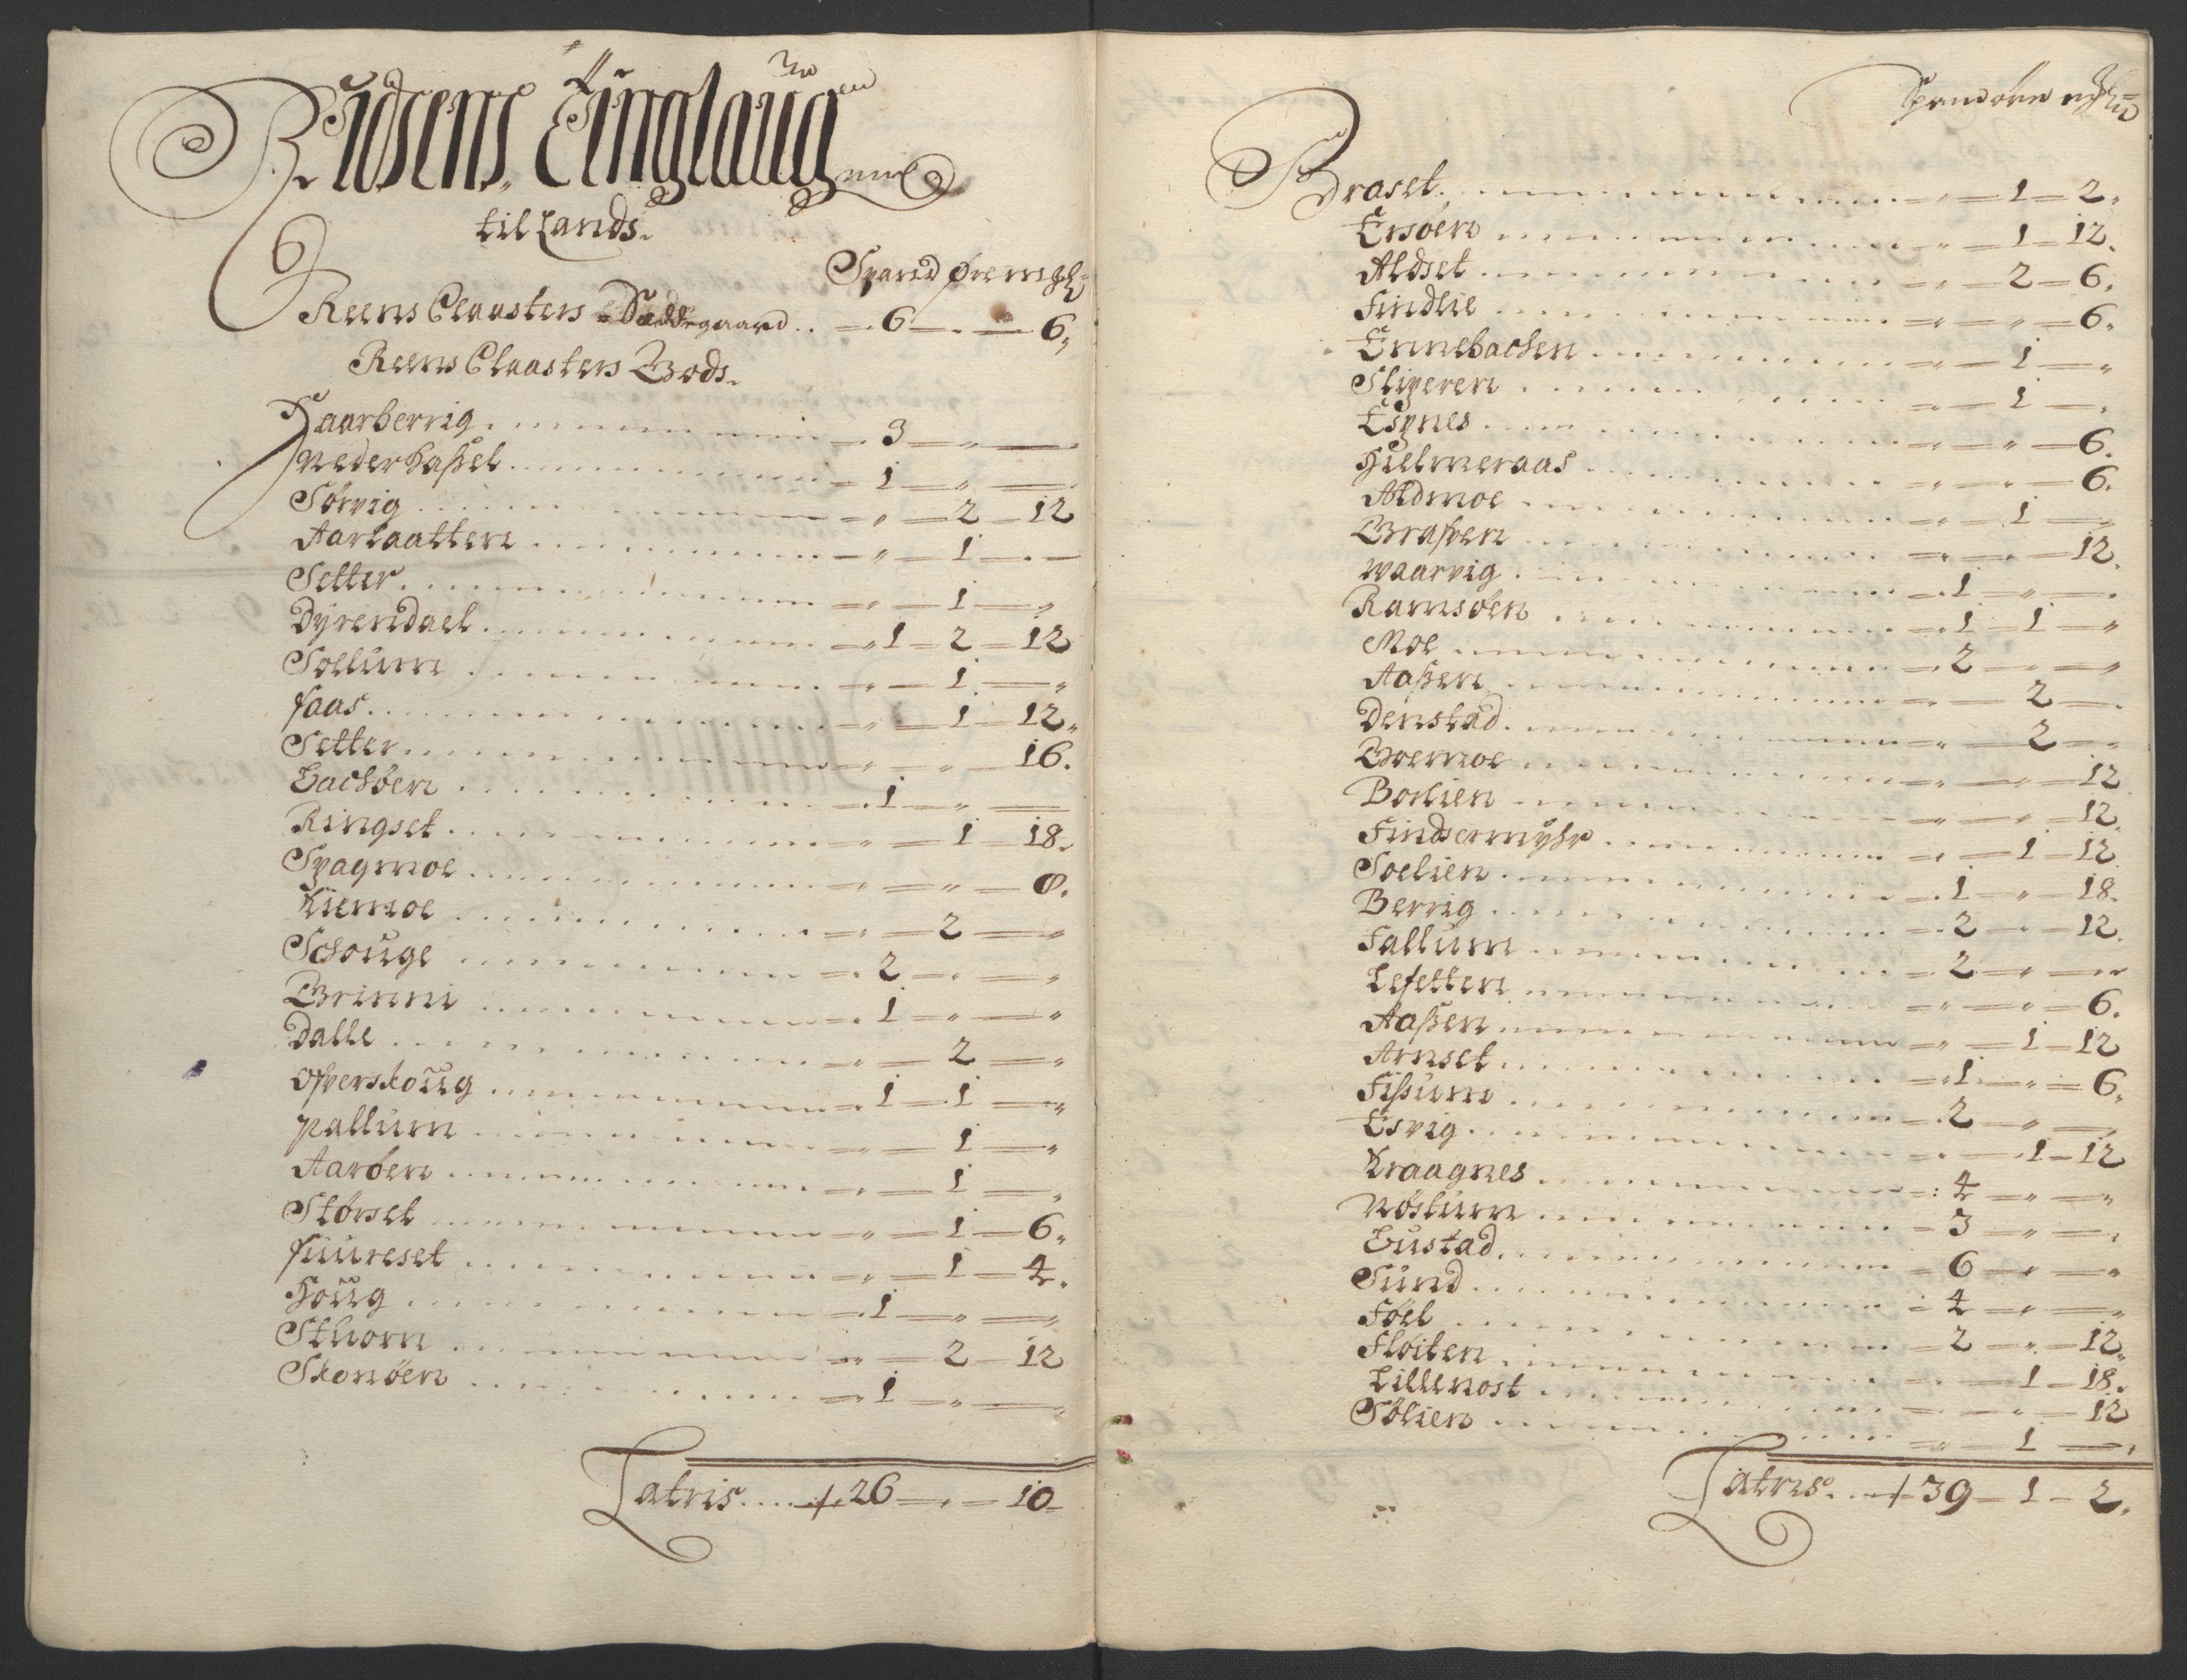 Ridsens Tinglaug
til Lands.
Spand øre mgl
Reens Closters Sæddegaard . . — 6 — . — 6,
Reens Closters Gods.
Haarberrig . — 3 — " —
Nederhaßel . — 1 — " —
Sørvig . — " — 2 — 12
Aarlaatten . — " — 1 — . —
Setter . — " — 1 — "
Dÿrendael . — 1 — 2 — 12
Sollum . — " — 1 — "
faas . — " — 1 — 12.
Setter . — " — " — 16.
Bachøen . — 1 — " —
Ringset . — " — 1 — 18.
Spagmoe . — " — " — 8.
Kiemoe . — " — 2 — "
Schouge . — 2 — " — "
Grinni . — 1 — " — "
Dalle . — " — 2 — "
Ofverskoug . — 1 — 1 — "
pallum . — " — 1 — "
Aarøen . — " — 1 — "
Størset . — " — 1 — 6.
fuureset . — " — 1 — 4.
Houg . — 1 — " — "
Stuorn . — " — 2 — 12
Skonøen . — 1 — " — "
Latris . . . . 26 — " — 10
Spand øre mgl
Braset . — " — 1 — 2.
Ersøen . — " — 1 — 12.
Aldset . — " — 2 — 6.
Findlie . — " — " — 6.
Ennebachen . — " — 1 — "
Sliperen . — " — 1 — "
Espnes . — " — " — 6.
Hielmeraas . — " — " — 6.
Aldmoe . — " — 1 — "
Grafven . — " — " — 12.
Waarvig . — 1 — " — "
Ramsøen . — 1 — 1 — "
Moe . — 2 — " — "
Aaßen . — " — 2 — "
Denstad . — " — 2 — "
Goemoe . — " — " — 12
Borlien . — " — " — 12.
Findsermÿhr . — " — 1 — 12
Soelien . — 1 — " — 18.
Berrig . — 2 — " — 12.
Fallum . — 2 — " — "
Lefetten . — " — " — 6.
Aaßen . — " — 1 — 12
Arnset . — 1 — " — 6.
Fißum . — 2 — " — "
Esvig . — " — 1 — 12
Kraagnes . — 4 — " — "
Nøstum . — 3 — " — "
Gustad . — 6 — " — "
Sund . — 4 — " — "
Føel . — 2 — " — 12.
Fløiten . — " — 1 — 18.
Lillenost . — " — " — 12
Sølien . — " — 1 — "
Latris . . 39 — 1 — 2.